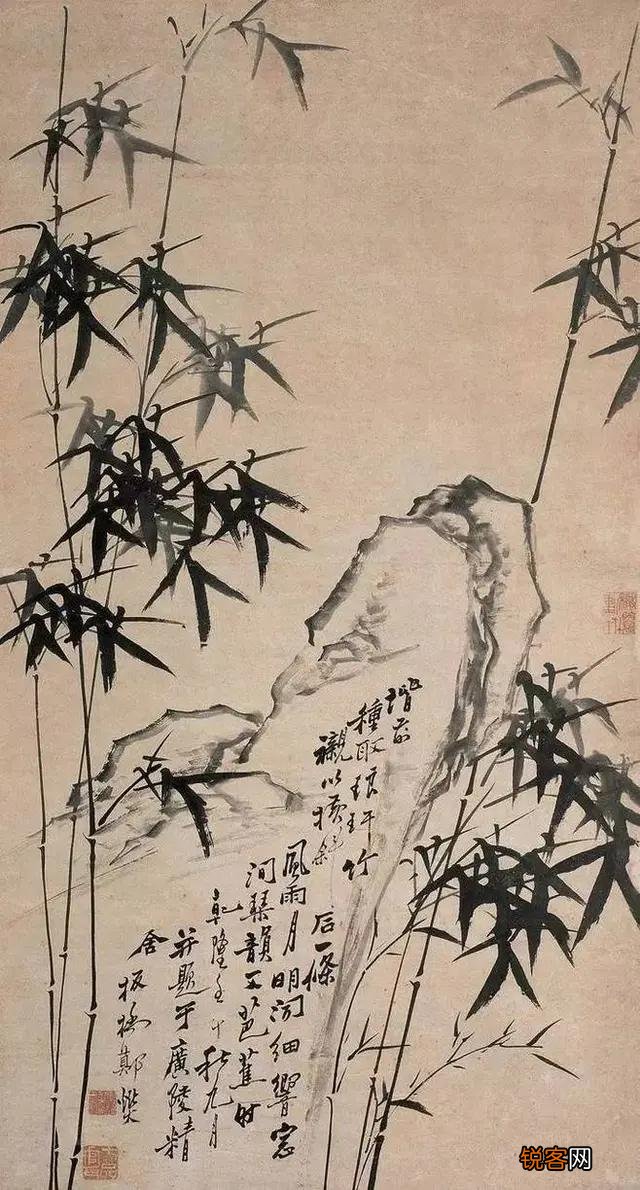 階前
種取琅玕竹
襯以橫斜
石一條
風雨月明聞細響窗
間琴韻芭蕉時
乾隆壬午秋九月
并題于廣陵精
舍板橋鄭燮
锐客网